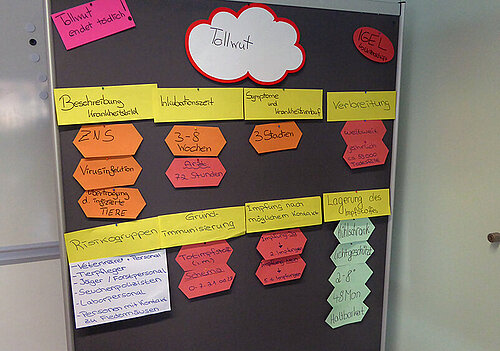 Tollwut
endet tödlich!
Tollwut
IGEL
Beschreibung
Krankheitsbild
ZNS
Virusinfektion
Übertragung
d. infizierte
TIERE
Inkubationszeit
3-8
Wochen
72 Stunden
Symptome
und Krankheitsverlauf
3 Stadien
Verbreitung
weltweit
jährlich
ca. 55.000
Risikogruppen
- Veterinäre + Personal
- Tierpfleger
- Jäger / Forstpersonal
- Seuchenpolizisten
- Laborpersonal
- Personen mit Kontakt
zu Fledermäusen
Grund-
immunisierung
Totimpfstoff
(i.m)
Schema
0. 7. 21. od 28
Impfung nach
möglichem Kontakt
2 Impfungen
Impfungen
Lagerung des
Impfstoffes
Kühlschrank
lichtgeschützt
2-8°
48 Mon
Haltbarkeit